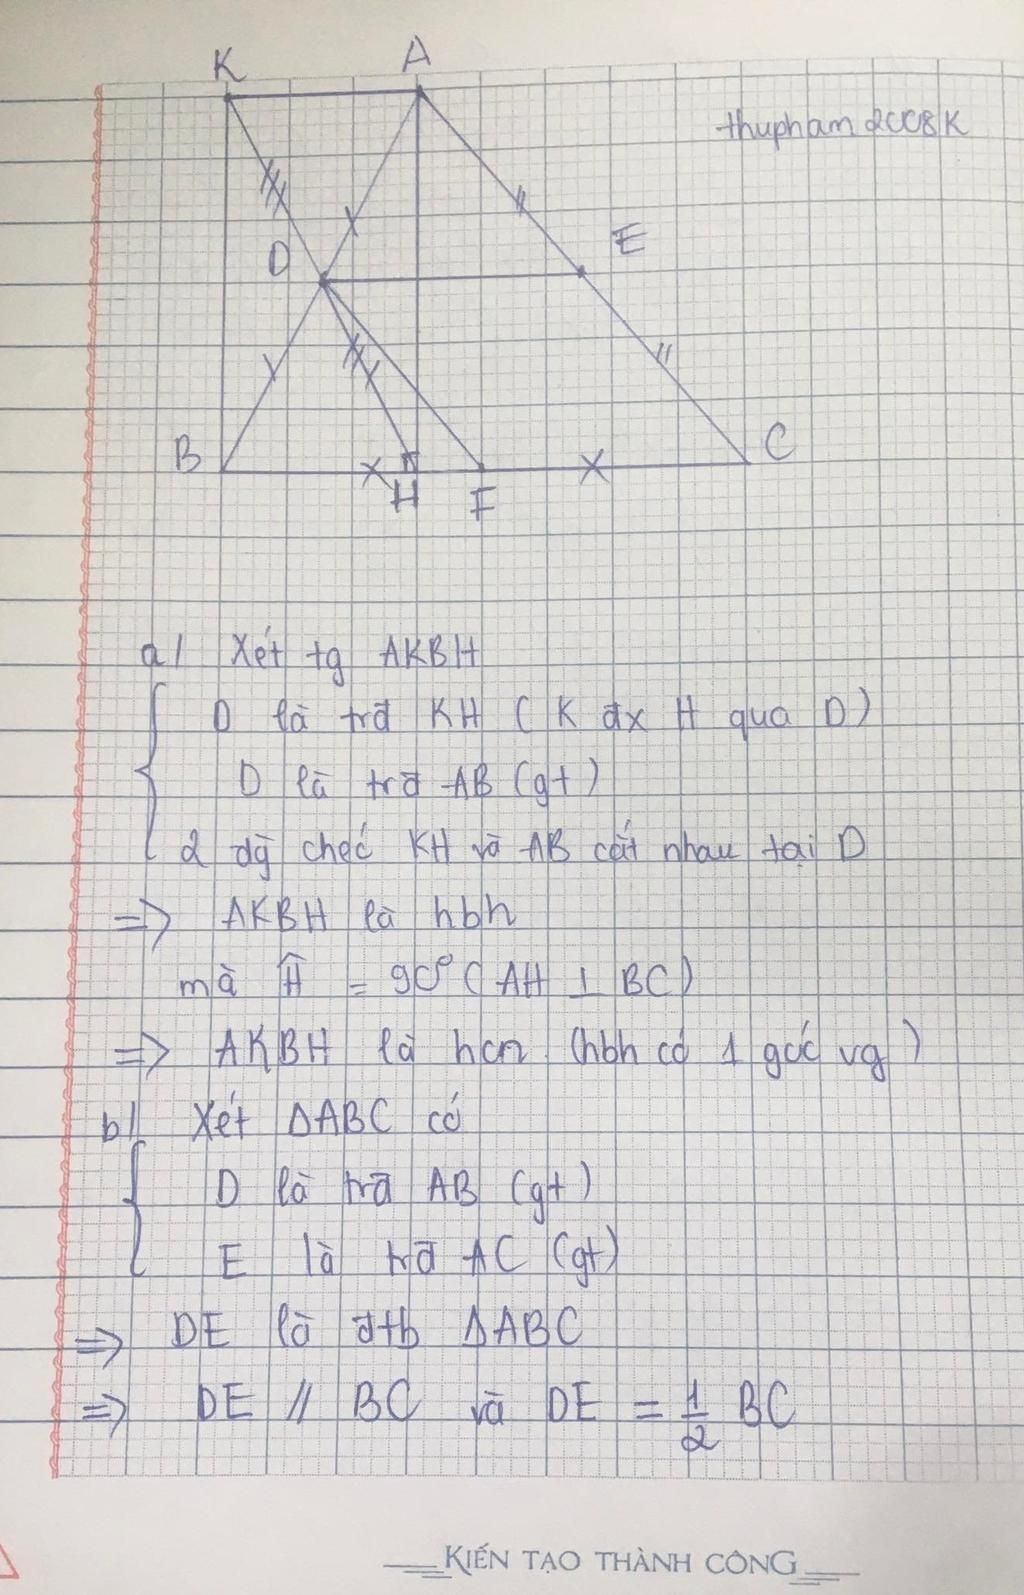 K A
thupham2008K
D E
B H F C
a/ Xét tg AKBH
D là trđ KH (K đx H qua D)
D là trđ AB (gt)
2 đg chéo KH và AB cắt nhau tại D
=> AKBH là hbh
mà Ĥ = 90° (AH ⊥ BC)
=> AKBH là hcn (hbh có 1 góc vg)
b/ Xét ΔABC có
D là trđ AB (gt)
E là trđ AC (gt)
=> DE là đtb ΔABC
=> DE // BC và DE = 1/2 BC
KIẾN TẠO THÀNH CÔNG